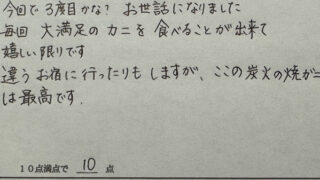 今回で3度目かな? お世話になりました
毎回 大満足のカニを食べることが出来て
嬉しい限りです
違うお宿に行ったりもしますが、ここの炭火の焼がニ
は最高です.
10点満点で 10 点